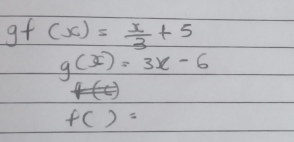 gf (x) = x/3 + 5
g(x) = 3x - 6
f( ) =